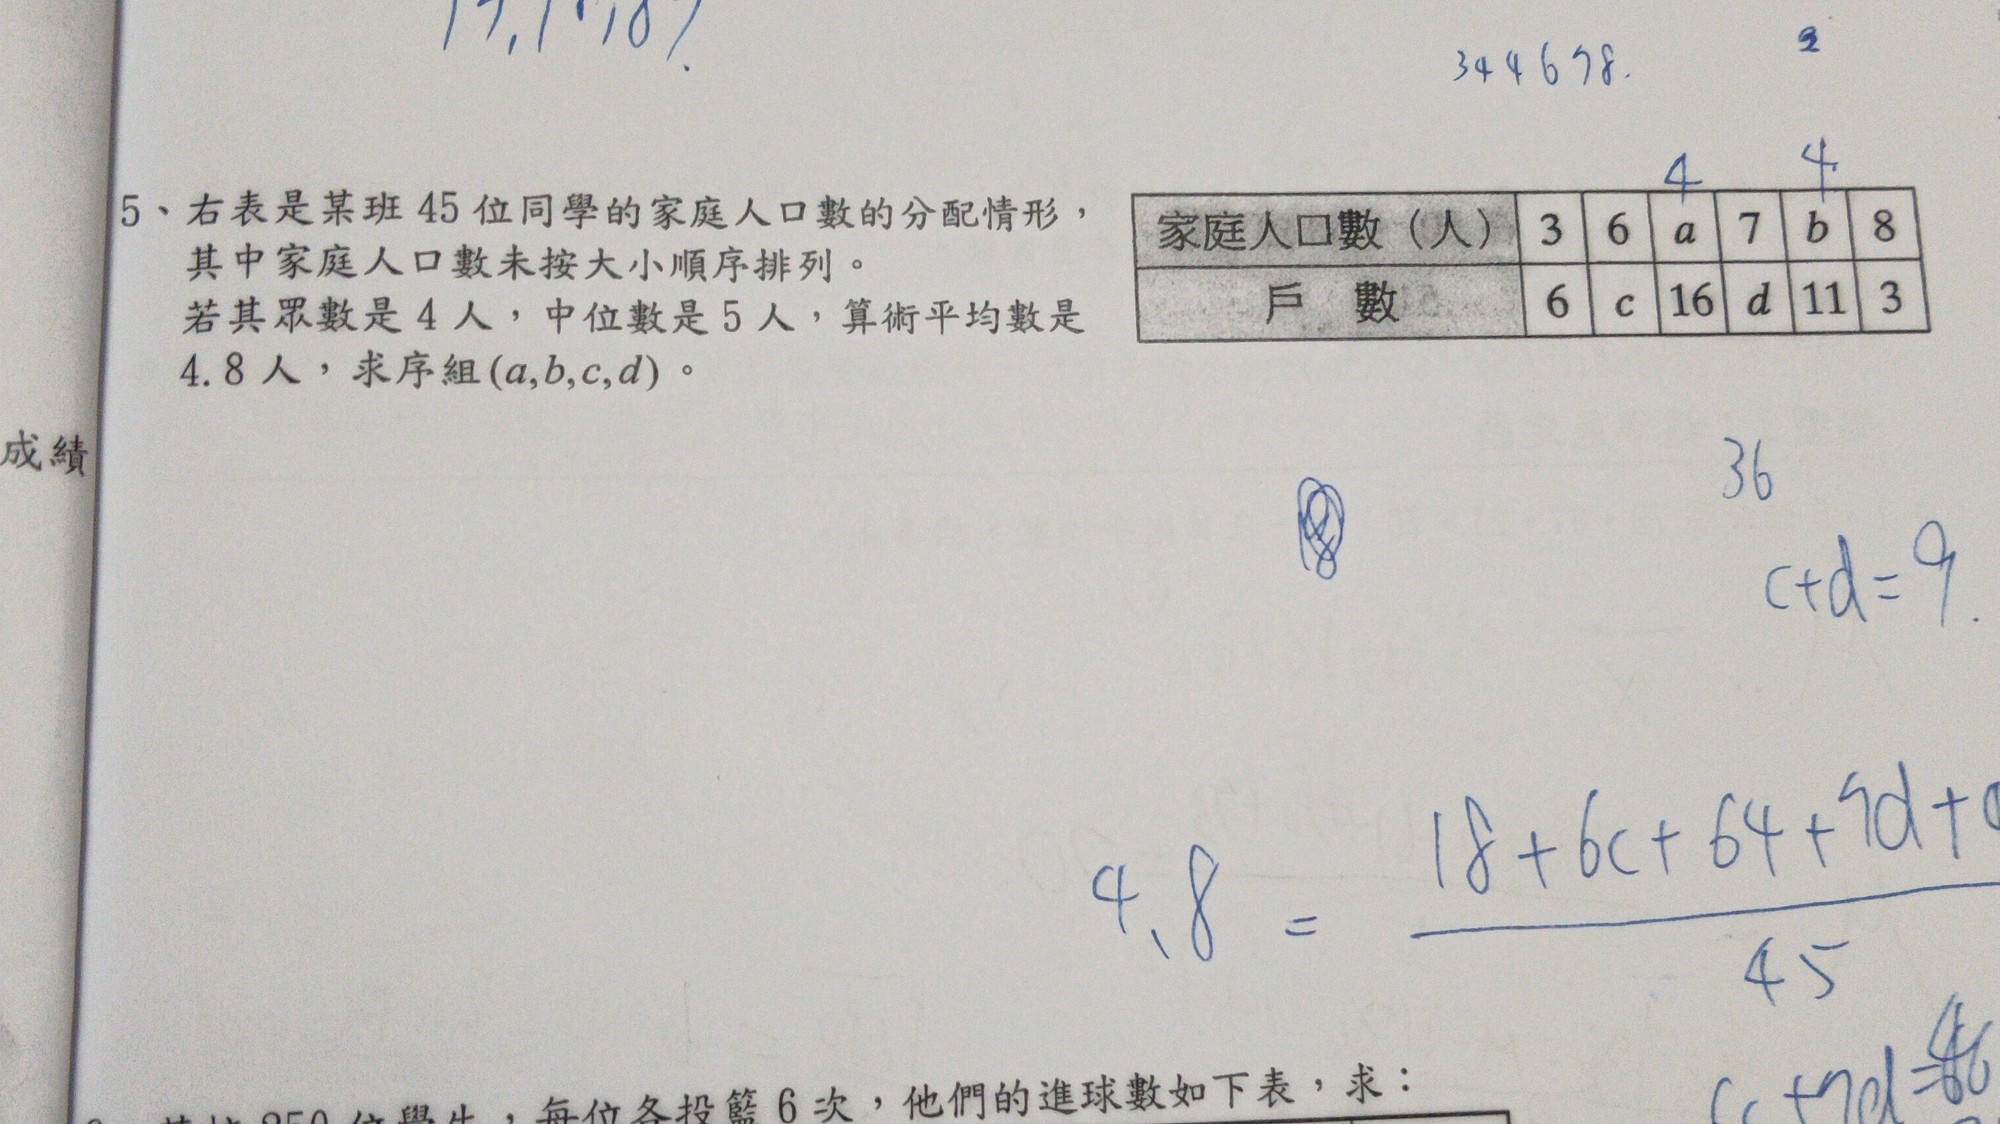 344678.
2
4 4
5、右表是某班45位同學的家庭人口數的分配情形，
其中家庭人口數未按大小順序排列。
若其眾數是4人，中位數是5人，算術平均數是
4.8人，求序組(a,b,c,d)。
家庭人口數（人） 3 6 a 7 b 8
戶 數 6 c 16 d 11 3
成績
36
c+d=9.
4.8 = 18+6c+64+7d+
45
6c+7d=
位學生，每位各投籃6次，他們的進球數如下表，求：